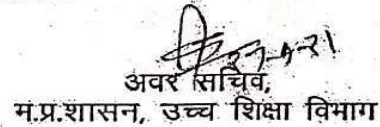 अवर सचिव,
म.प्र.शासन, उच्च शिक्षा विभाग